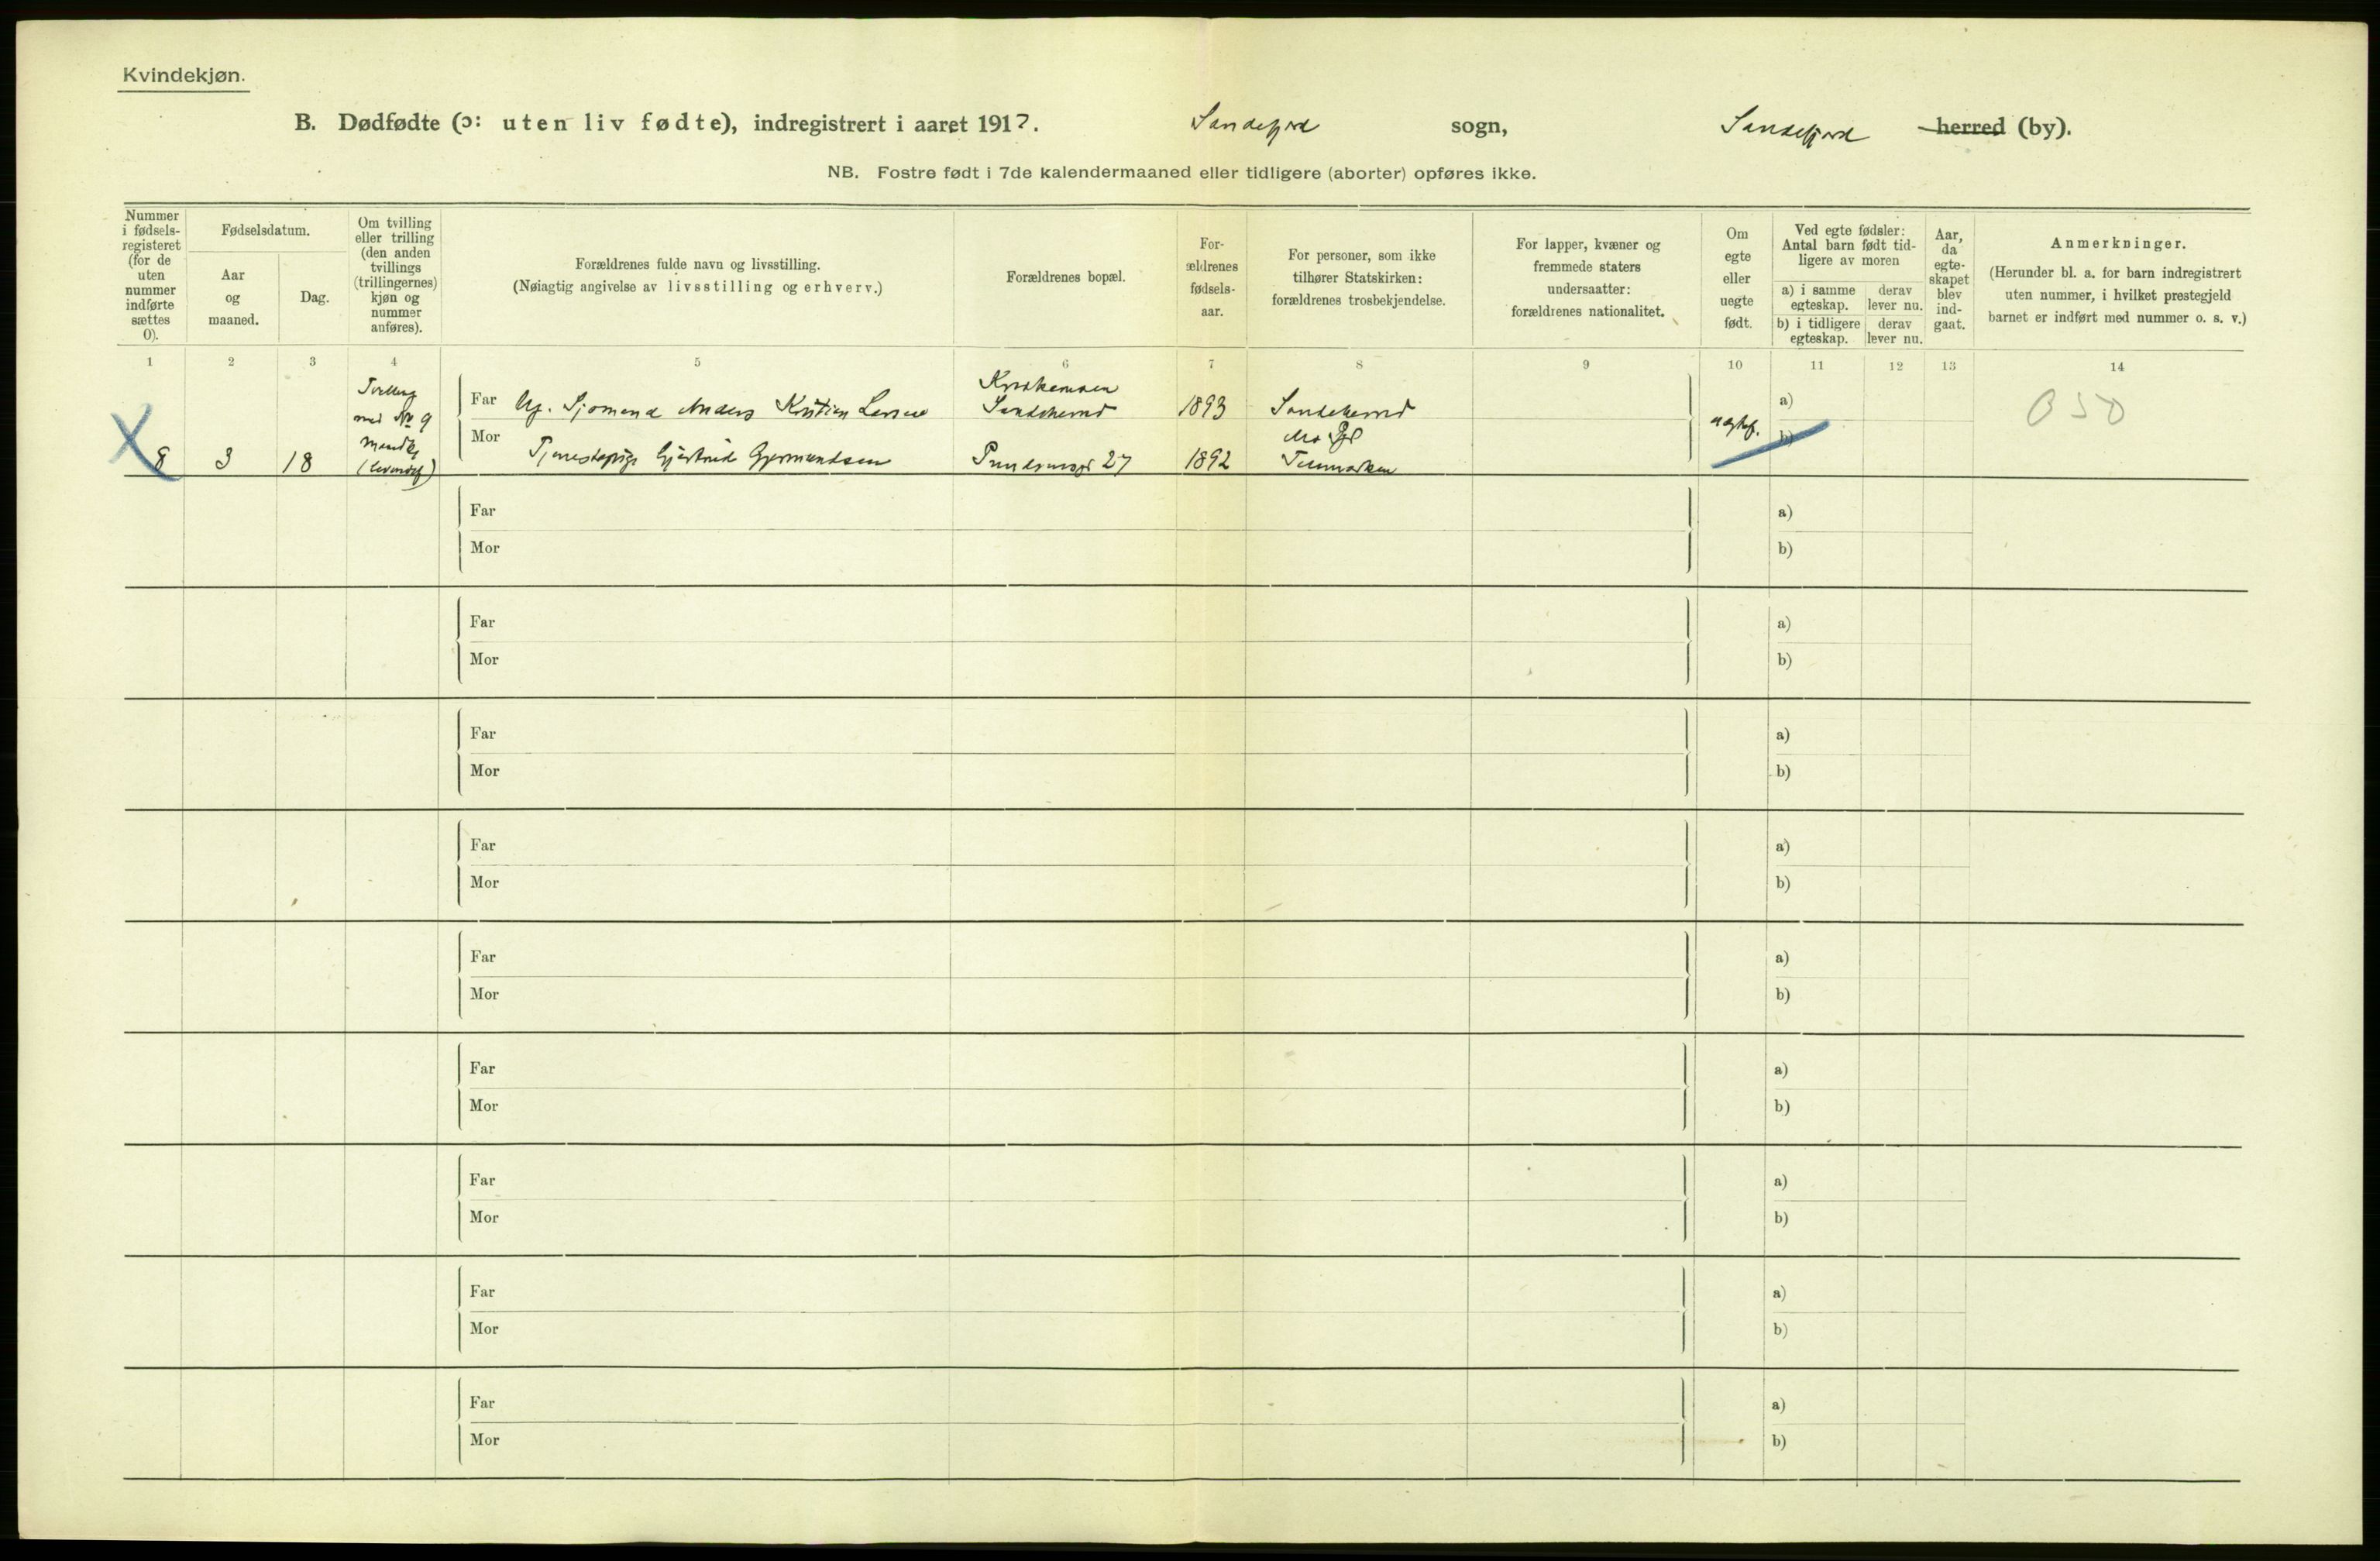 Kvindekjøn.
B. Dødfødte (ɔ: uten liv fødte), indregistrert i aaret 1917. Sandefjord sogn, Sandefjord herred (by).
NB. Fostre født i 7de kalendermaaned eller tidligere (aborter) opføres ikke.
Nummer i fødsels-registeret (for de uten nummer indførte sættes 0).
Fødselsdatum.
Aar og maaned.
Dag.
Om tvilling eller trilling (den anden tvillings (trillingernes) kjøn og nummer anføres).
Forældrenes fulde navn og livsstilling.
(Nøiagtig angivelse av livsstilling og erhverv.)
Forældrenes bopæl.
For-ældrenes fødsels-aar.
For personer, som ikke tilhører Statskirken: forældrenes trosbekjendelse.
For lapper, kvæner og fremmede staters undersaatter: forældrenes nationalitet.
Om egte eller uegte født.
Ved egte fødsler: Antal barn født tid-ligere av moren
a) i samme egteskap.
derav lever nu.
b) i tidligere egteskap.
derav lever nu.
Aar, da egte-skapet blev ind-gaat.
Anmerkninger.
(Herunder bl. a. for barn indregistrert uten nummer, i hvilket prestegjeld barnet er indført med nummer o. s. v.)
1 2 3 4 5 6 7 8 9 10 11 12 13 14
8 3 18
Tvilling
med No 9
Mandkj
Far Ug. Sjømand Anders Kristian Larsen
Sandeherred 1893 Sandeherred
a)
050
Mor Tjenestepige Gjertrud Gjermundsen
27 1892
b)
Far a)
Mor b)
Far a)
Mor b)
Far a)
Mor b)
Far a)
Mor b)
Far a)
Mor b)
Far a)
Mor b)
Far a)
Mor b)
Far a)
Mor b)
Far a)
Mor b)